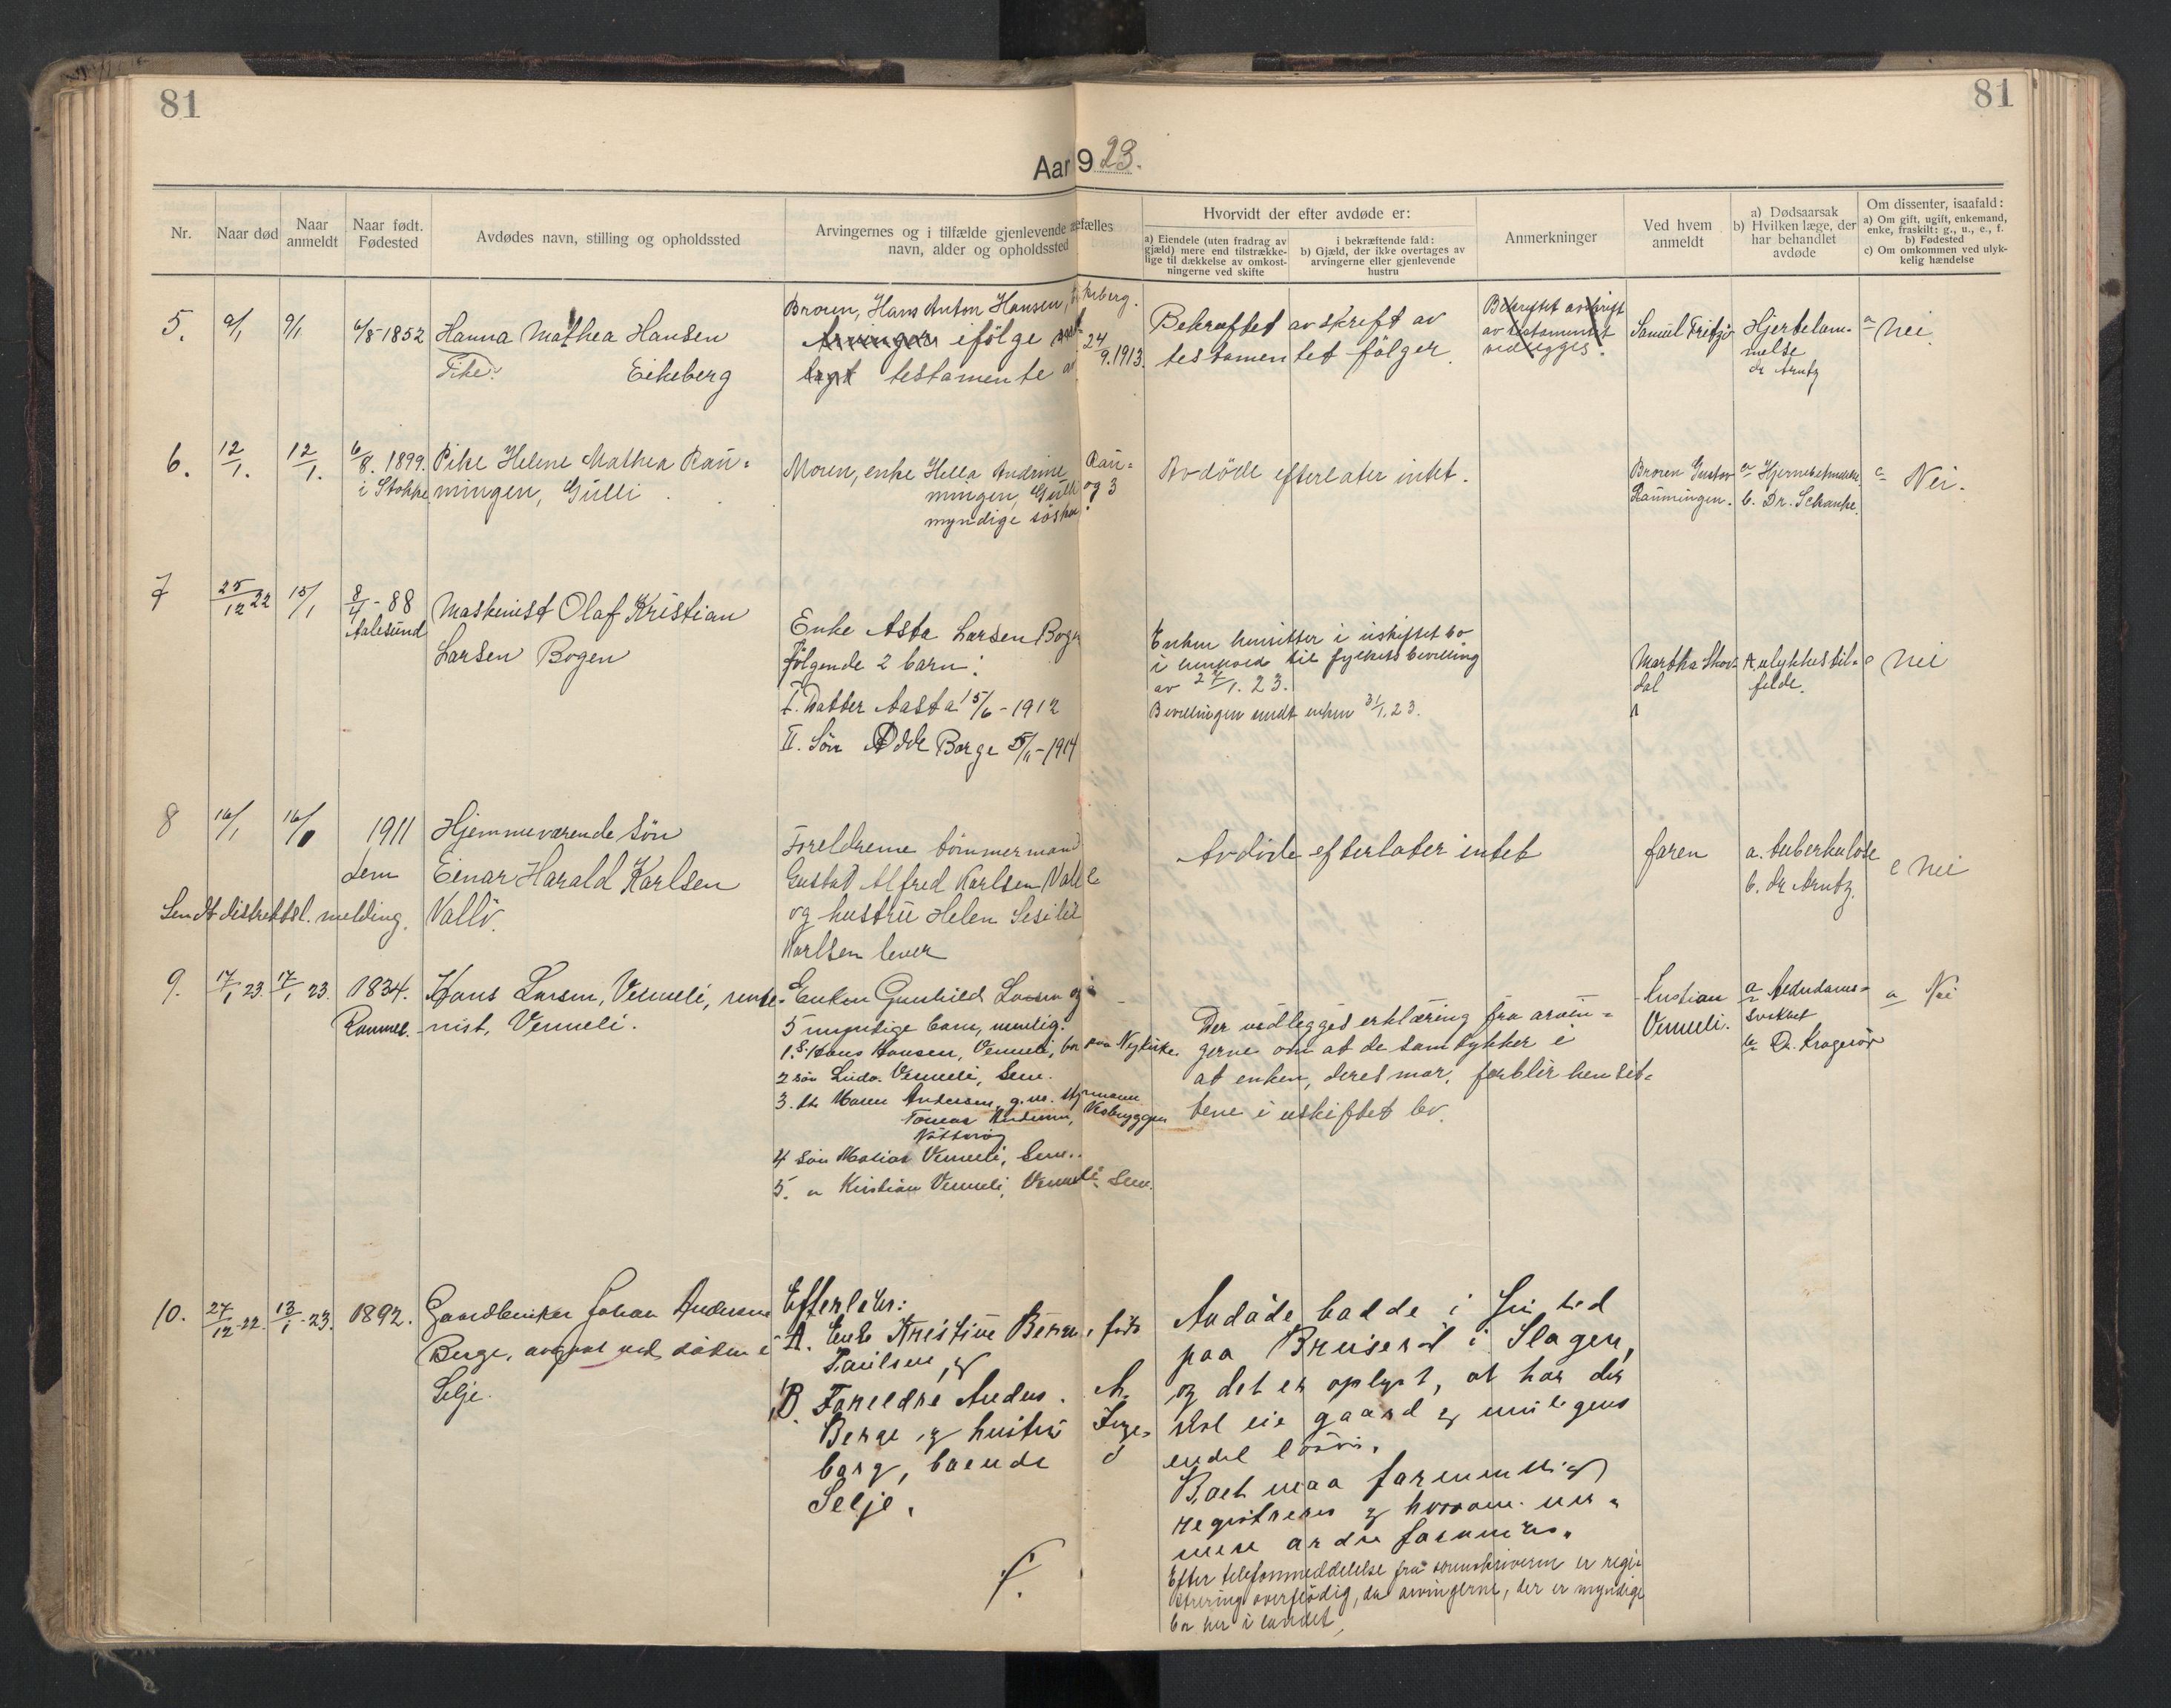 81
81
Aar 9 23.
Nr.
Naar død
Naar anmeldt
Naar født. Fødested
Avdødes navn, stilling og opholdssted
Arvingernes og i tilfælde gjenlevende efælles
navn, alder og opholdssted
Hvorvidt der efter avdøde er:
a) Eiendele (uten fradrag av gjæld) mere end tilstrækkelige til dækkelse av omkostningerne ved skifte
i bekræftende fald:
b) Gjæld, der ikke overtages av arvingerne eller gjenlevende hustru
Anmerkninger
Ved hvem anmeldt
a) Dødsaarsak
b) Hvilken læge, der har behandlet avdøde
Om dissenter, isaafald:
a) Om gift, ugift, enkemand, enke, fraskilt: g., u., e., f.
b) Fødested
c) Om omkommen ved ulykkelig hændelse
5. 9/1 9/1 6/8-1852 Hanna Mathea Hansen
Eikeberg
Broren, Hans Anton Hansen,
Arvinger ifölge
testamente
24/9.1913.
Bekræftet avskrift av
testamentet fölger.
Bekræftet avskrift
av testamentet
vedlegges.
Samuel
Hjertelam-
melse
dr Arntz
Nei.
6. 12/1. 12/1. 6/8. 1899. Pike Helene Mathea Ran-
i Stokke mingen, Gulli
Moren, enke Hella Andrine Ran-
mingen, Gulli og 3
myndige sösken.
Avdöde efterlater intet.
Broren Gustav
Ranmingen.
a
b. Dr. Schanke.
c Nei.
7 25/12 22 15/1 8/4-88 Maskinist Olaf Kristian
Aalesund Larsen Bogen
Enke Asta Larsen Bogen
fölgende 2 barn:
I. Datter Aasta 15/6-1912
II. Sön Borge 5/11-1914
Enken hensitter i uskiftet bo
i henhold til fylkets bevilling
av 27/1. 23.
Bevillingen sendt enken 31/1.23.
Martha Skov-
dal
a. ulykkestil-
felde.
c nei
8 16/1 16/1 1911 Hjemmeværende sön
Sem Einar Harald Karlsen
Sendt distriktsl. melding. Vallö.
Foreldrene tömmermand
Gustav Alfred Karlsen Vallö
og hustru Helen
Karlsen lever
Avdöde efterlater intet
faren
a. tuberkulose
b. dr Arntz.
c nei
9. 17/1 23. 17/1 23. 1834. Hans Larsen, Vemeli, rente-
Rammes. nist, Vemeli.
Enken Gunhild Larsen og
5 myndige barn, nemlig:
1. S. Hans Hansen, Vemeli, bor paa Nykirke
2 sön Ludv. Vemeli, Sem.
3. dt. Maren Andersen, g.m. styrmann
Tomas Andersen, Vestbryggen
Nötteröy
4 sön Matias Vemeli, Sem.
5. " Kristian Vemeli, Vemeli Sem.
Der vedlegges erklæring fra arvin-
gerne om at de samtykker i
at enken, deres mor, forblir hensit-
tene i uskiftet bo.
Kristian
Vemeli.
a Alderdoms-
svakhet
b Dr. Kragerör
a Nei
10. 27/12-22. 13/1-23. 1892. Gaardbruker Johan Andersen
Berge, avgaat ved döden i
Selje.
Efterlater:
A. Enke Kristine Berge, född
Paulsen, og
B. Foreldre Anders M.
Berge og hustru Inge-
borg, boende i
Selje.
Avdöde hadde i sin tid
paa Bruseröd i Slagen,
og det er oplyst, at han der
skal eie gaard og muligens
endel lösöre.
Boet maa formentlig
registreres og hvorom nær-
mere ordre forventes.
Efter telefonmeddelelse fra sorenskriveren er regi-
strering overflödig, da arvingerne, der er myndige
bor her i landet,